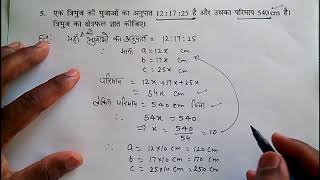 5. एक त्रिभुज की भुजाओं का अनुपात 12:17:25 है और उसका परिमाप 540 cm है।
त्रिभुज का क्षेत्रफल ज्ञात कीजिए।
यहाँ की भुजाओं का अनुपात = 12:17:25
∴ माना a = 12x cm
b = 17x cm
c = 25x cm
परिमाप = 12x+17x+25x
लेकिन परिमाप = 540 cm दिया
∴ 54x = 540
⇒ x = 540/54 = 10
∴ a = 12×10 cm = 120 cm
b = 17×10 cm = 170 cm
c = 25×10 cm = 250 cm